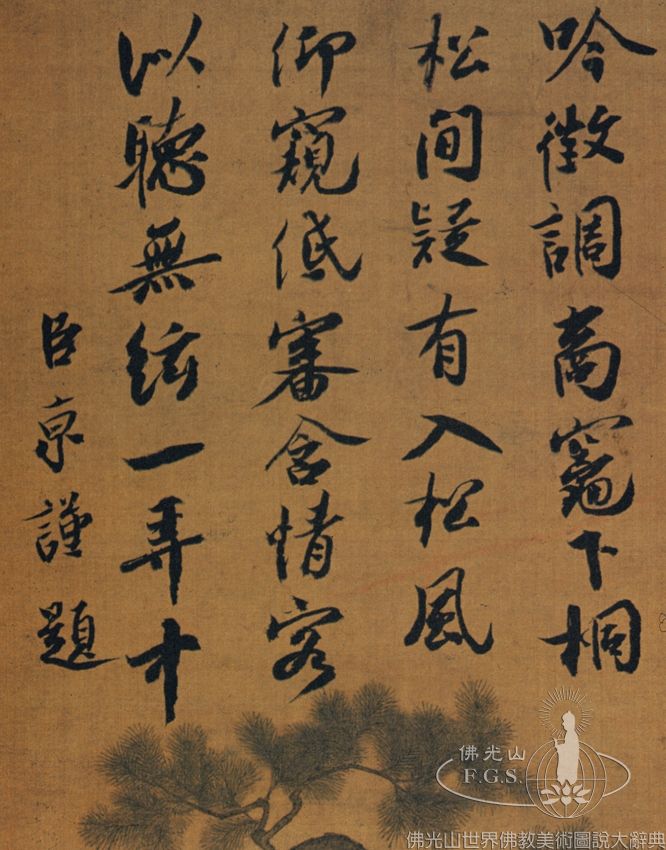 吟徵調商竈下桐
松間疑有入松風
仰窺低審含情客
以聽無絃一弄中
臣京謹題
佛光山
F.G.S.
佛光山世界佛教美術圖說大辭典